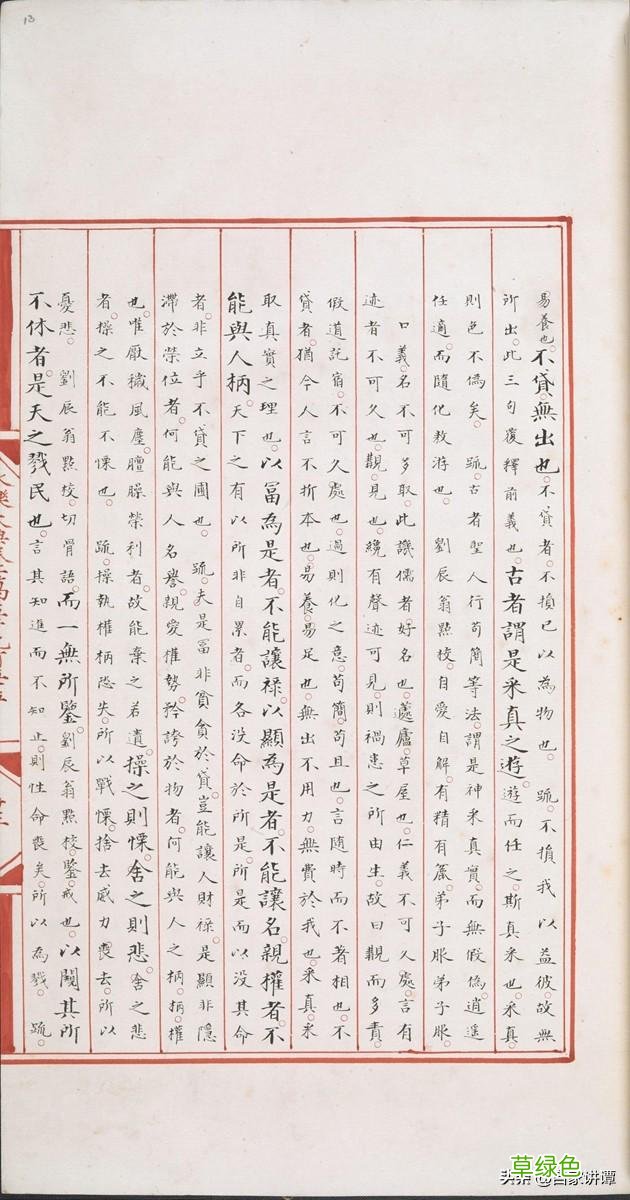 13
易養也。不貸無出也。不貸者。不損己以為物也。疏。不損我以益彼。故無
所出。此三句覆釋前義也。古者謂是采真之遊。遊而任之。斯真采也。采真
則色不偽矣。疏。古者聖人行苟簡等法。謂是神采真實。而無假偽。逍遙
任適。而隨化敖游也。劉辰翁點校。自愛自解。有精有麄。弟子服弟子服。
口義。名不可多取。此譏儒者好名也。蘧廬。草屋也。仁義不可久處。言有
迹者不可久也。覯。見也。纔有聲迹可見。則禍患之所由生。故曰覯而多責。
假道託宿。不可久處也。過則化之意。苟簡。苟且也。言隨時而不著相也。不
貸者。猶今人言不折本也。易養。易足也。無出。不用力。無費於我也。采真。采
取真實之理也。以富為是者。不能讓祿。以顯為是者。不能讓名。親權者。不
能與人柄。天下之有以所非自累者。而各沒命於所是。所是而以沒其命
者。非立乎不貸之圃也。疏。夫是富非貧。貪於貸。豈能讓人財祿。是顯非隱
滯於榮位者。何能與人名譽。親愛權勢。矜誇於物者。何能與人之柄。柄。權
也。唯厭穢風塵。羶臊榮利者。故能棄之若遺。操之則慄。舍之則悲。舍之悲
者。操之不能不慄也。疏。操執權柄恐失。所以戰慄。捨去威力喪去。所以
憂悲。劉辰翁點校。切骨語。而一無所鑒。劉辰翁點校。鑒。戒也。以闚其所
不休者。是天之戮民也。言其知進而不知止。則性命喪矣。所以為戮。疏。
草绿色